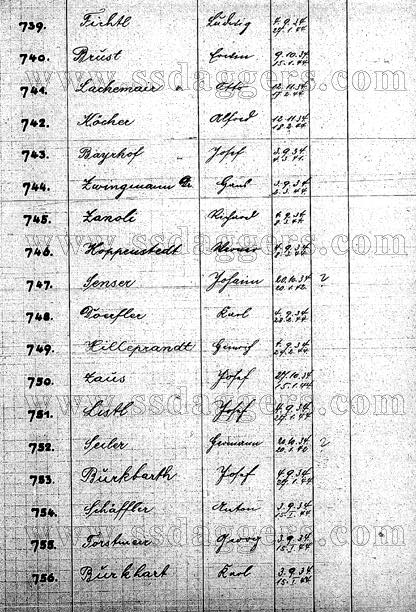 739. Fichtl Ludwig 7.9.34
740. Brust Erwin 9.10.34 15.1.44
741. Lachemair Otto 12.11.34 17.2.44
742. Kocher Alfred 12.11.34 18.2.44
743. Bayrhof Josef 3.9.34
744. Zwingmann Dr. Hans 3.9.34
745. Zanoli Richard 7.9.34
746. Hoppenstedt Werner 4.9.34
747. Senser Johann 20.10.34 20.1.42 ?
748. Doerfler Karl 4.9.34
749. Hilleprandt Heinrich 7.9.34
750. Zaus Josef 27.10.34 15.1.44
751. Listl Josef 4.9.34
752. Seiler Hermann ?
753. Burkbarth Josef 4.9.34
754. Schäffler Anton 3.9.34 15.1.44
755. Forstmeir Georg 3.9.34 15.1.44
756. Burkhart Karl 3.9.34 15.1.44
www.ssdaggers.com
www.ssdaggers.com
www.ssdaggers.com
www.ssdaggers.com
www.ssdaggers.com